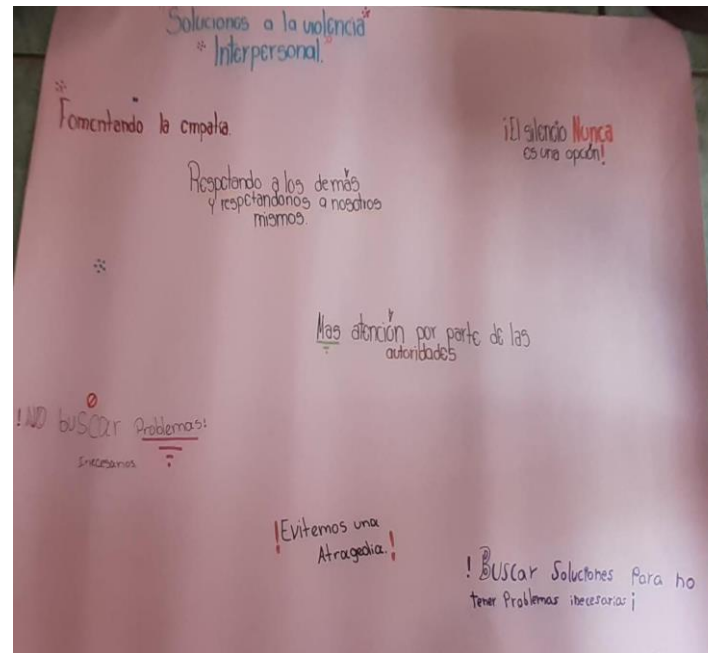 Soluciones a la violencia
Interpersonal.
Fomentando la empatia.
¡El silencio Nunca
es una opción!
Respetando a los demás
y respetandonos a nosotros
mismos.
Mas atención por parte de las
autoridades
!NO buscar Problemas!
Inecesarios
!Evitemos una
Atragedia.!
! Buscar Soluciones Para no
tener Problemas inecesarias ¡